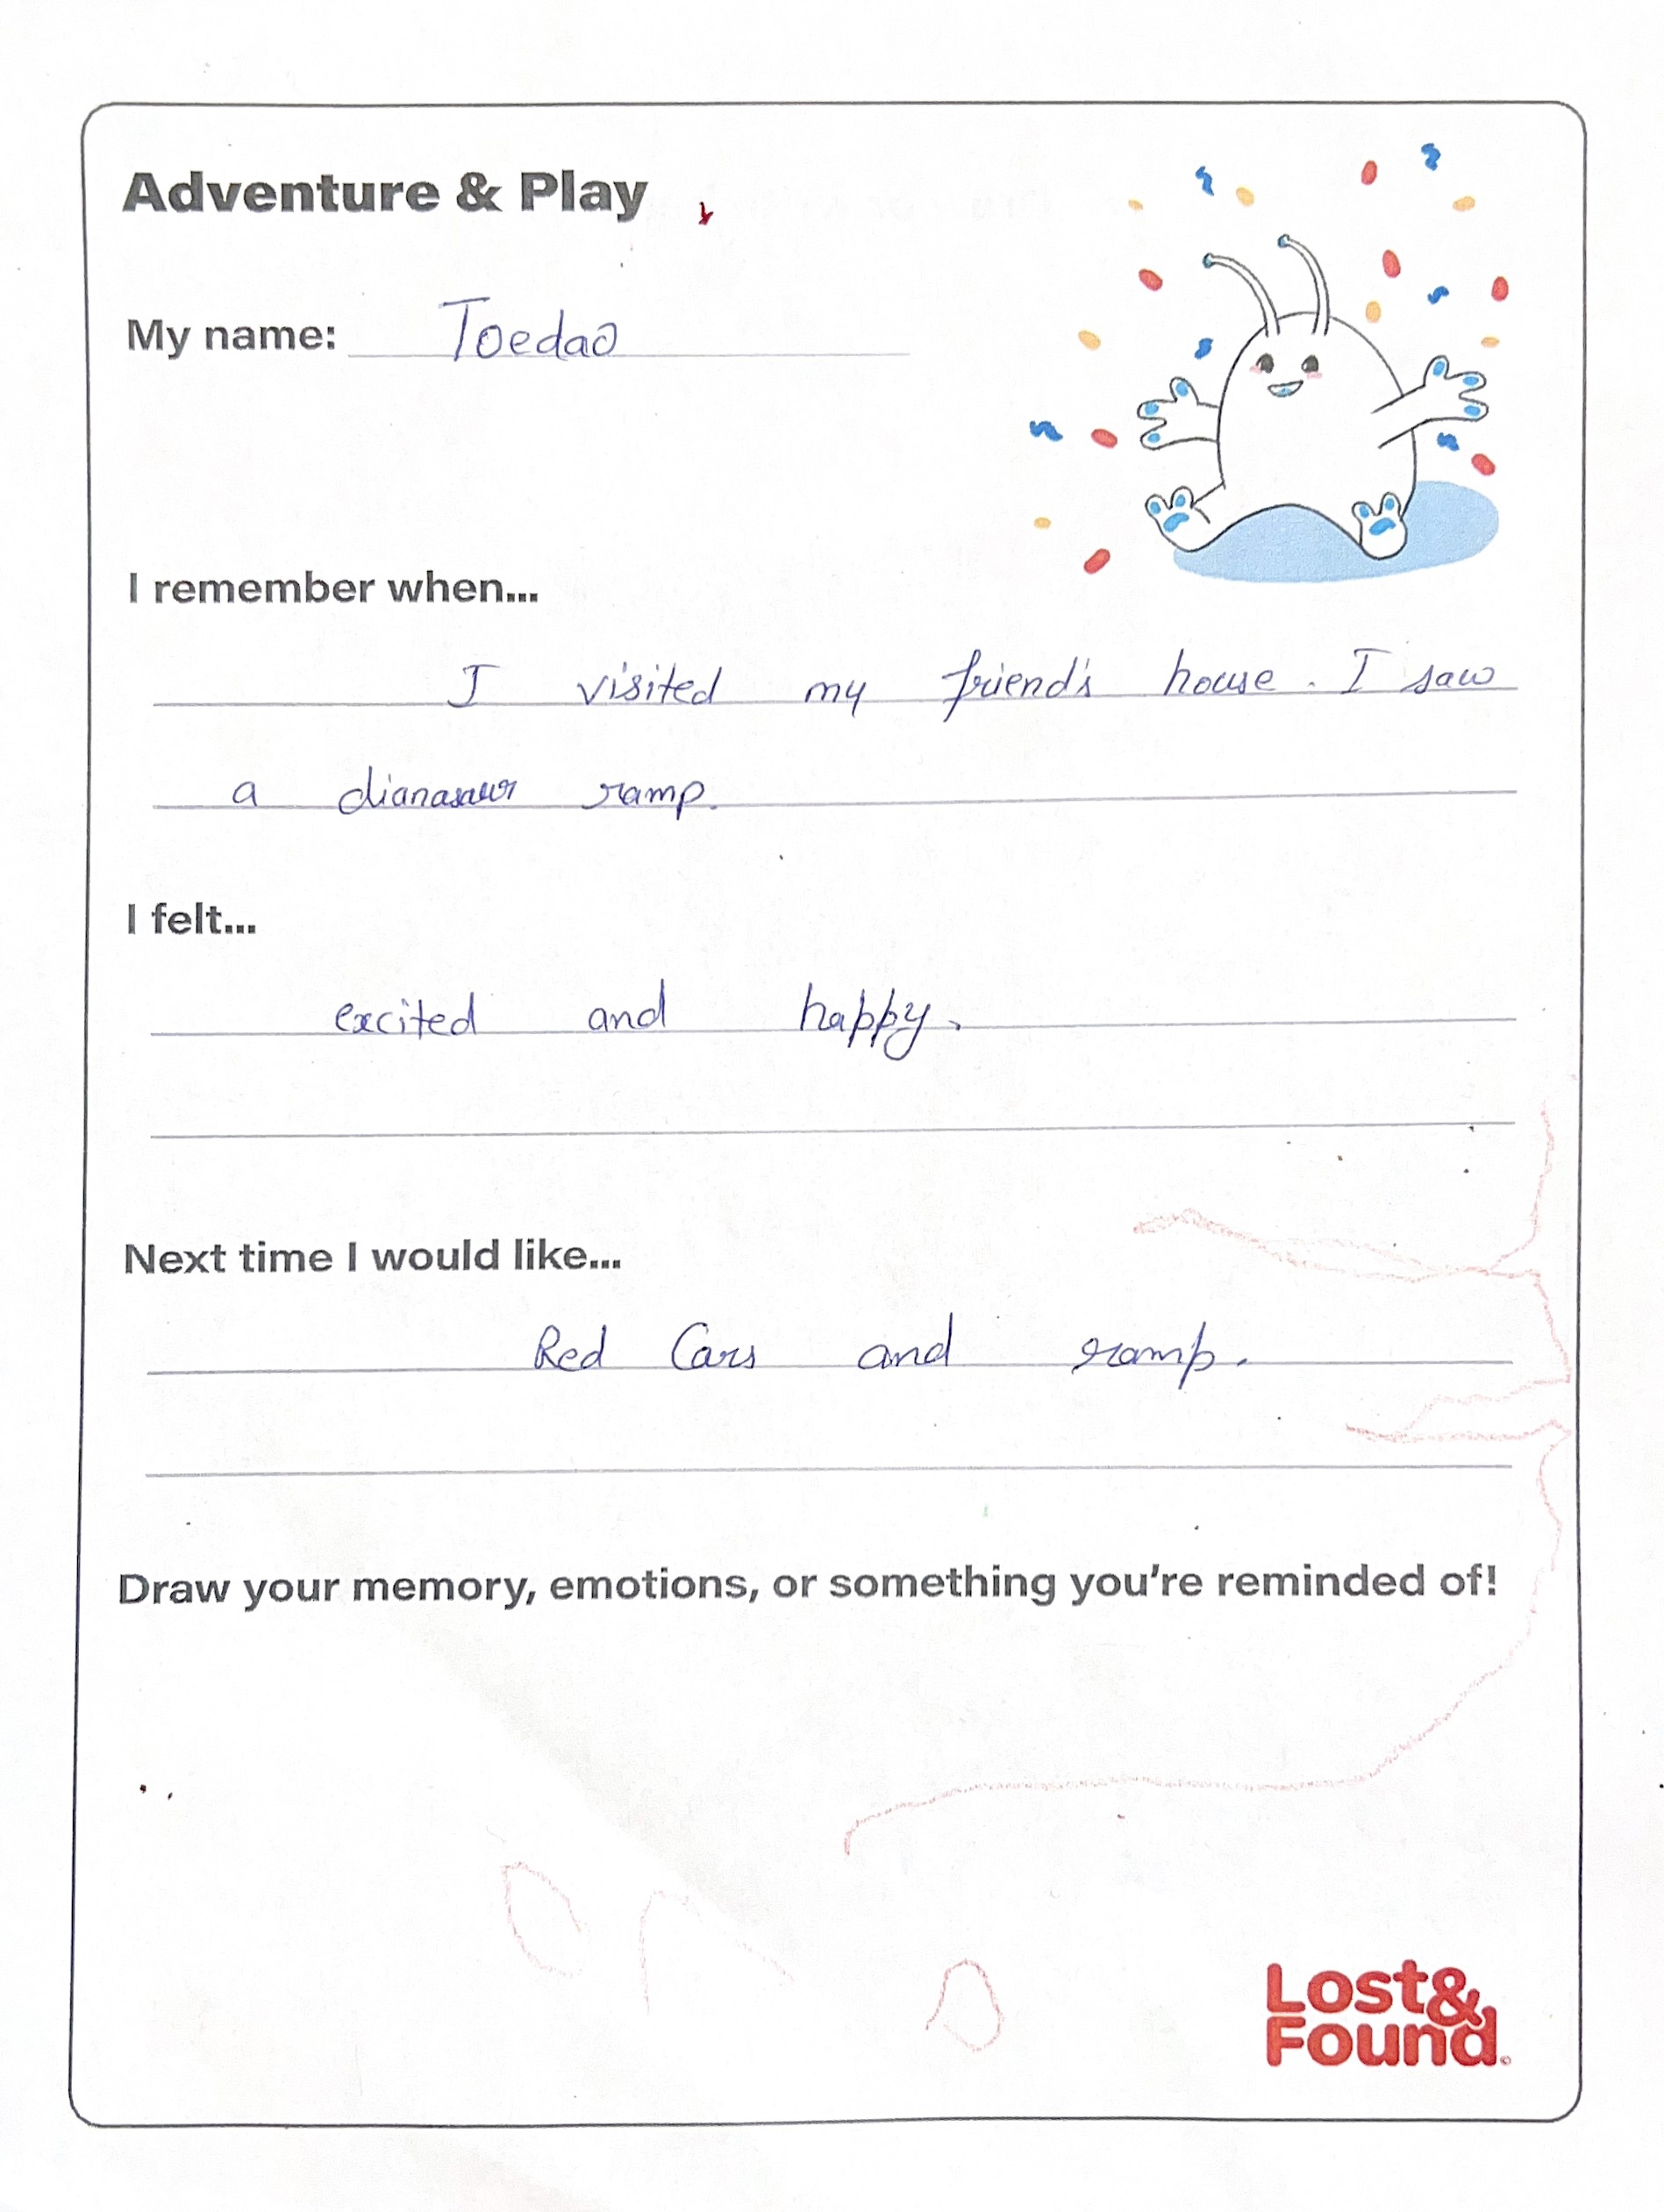 Adventure & Play
My name: Toedao
I remember when...
I visited my friend's house. I saw
a dianasaur ramp.
I felt...
excited and happy.
Next time I would like...
Red Cars and ramp.
Draw your memory, emotions, or something you're reminded of!
Lost&
Found